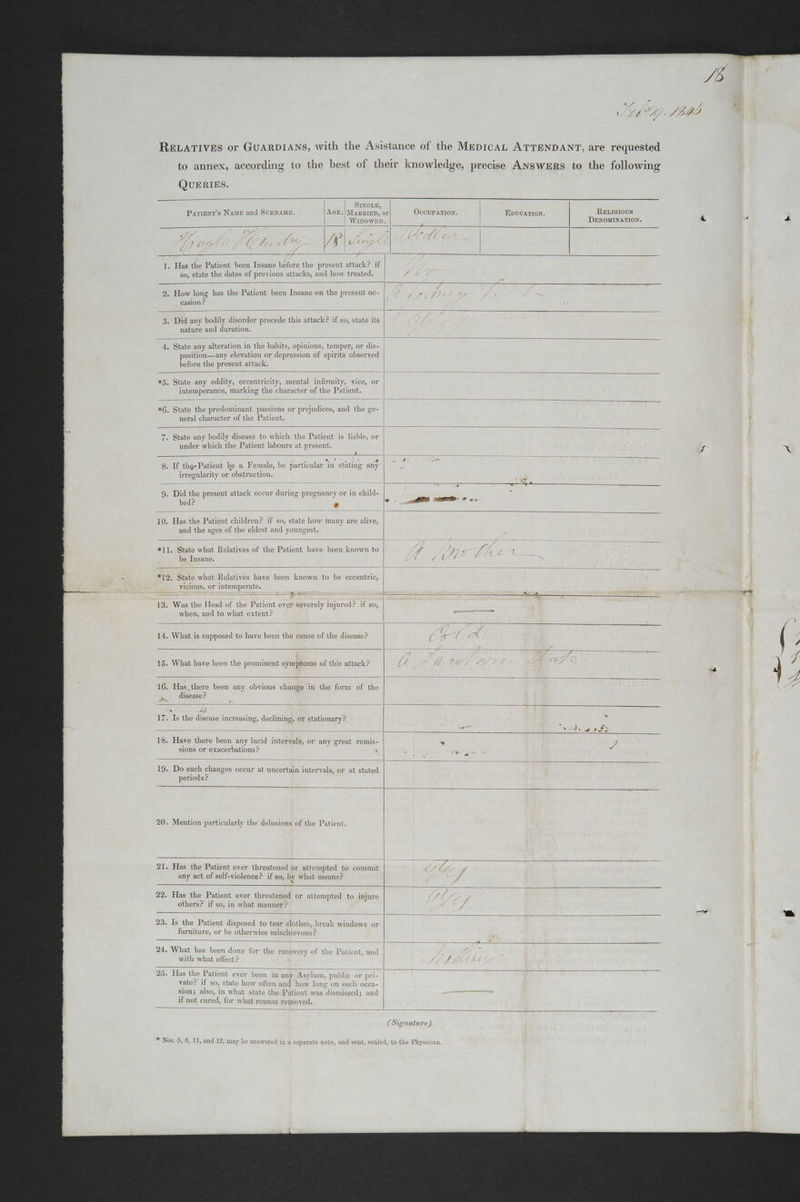 18
1846
RELATIVES or GUARDIANS, with the Asistance of the MEDICAL ATTENDANT, are requested
to annex, according to the best of their knowledge, precise ANSWERS to the following
QUERIES.
PATIENT'S NAME and SURNAME. AGE. SINGLE, MARRIED, or WIDOWED. OCCUPATION. EDUCATION. RELIGIOUS DENOMINATION.
Hendry 18 Single
1. Has the Patient been Insane before the present attack? if
so, state the dates of previous attacks, and how treated.
No
2. How long has the Patient been Insane on the present oc-
casion?
A
3. Did any bodily disorder precede this attack? if so, state its
nature and duration.
4. State any alteration in the habits, opinions, temper, or dis-
position—any elevation or depression of spirits observed
before the present attack.
*5. State any oddity, eccentricity, mental infirmity, vice, or
intemperance, marking the character of the Patient.
*6. State the predominant passions or prejudices, and the ge-
neral character of the Patient.
7. State any bodily disease to which the Patient is liable, or
under which the Patient labours at present.
8. If the Patient be a Female, be particular in stating any
irregularity or obstruction.
9. Did the present attack occur during pregnancy or in child-
bed?
10. Has the Patient children? if so, state how many are alive,
and the ages of the eldest and youngest.
*11. State what Relatives of the Patient have been known to
be Insane.
A Brother
*12. State what Relatives have been known to be eccentric,
vicious, or intemperate.
13. Was the Head of the Patient ever severely injured? if so,
when, and to what extent?
14. What is supposed to have been the cause of the disease?
Cold
15. What have been the prominent symptoms of this attack?
A State
16. Has there been any obvious change in the form of the
disease?
17. Is the disease increasing, declining, or stationary?
18. Have there been any lucid intervals, or any great remis-
sions or exacerbations?
19. Do such changes occur at uncertain intervals, or at stated
periods?
20. Mention particularly the delusions of the Patient.
21. Has the Patient ever threatened or attempted to commit
any act of self-violence? if so, by what means?
22. Has the Patient ever threatened or attempted to injure
others? if so, in what manner?
23. Is the Patient disposed to tear clothes, break windows or
furniture, or be otherwise mischievous?
24. What has been done for the recovery of the Patient, and
with what effect?
Nothing
25. Has the Patient ever been in any Asylum, public or pri-
vate? if so, state how often and how long on each occa-
sion; also, in what state the Patient was dismissed; and
if not cured, for what reason removed.
(Signature)
* Nos. 5, 6, 11, and 12, may be answered in a separate note, and sent, sealed, to the Physician.